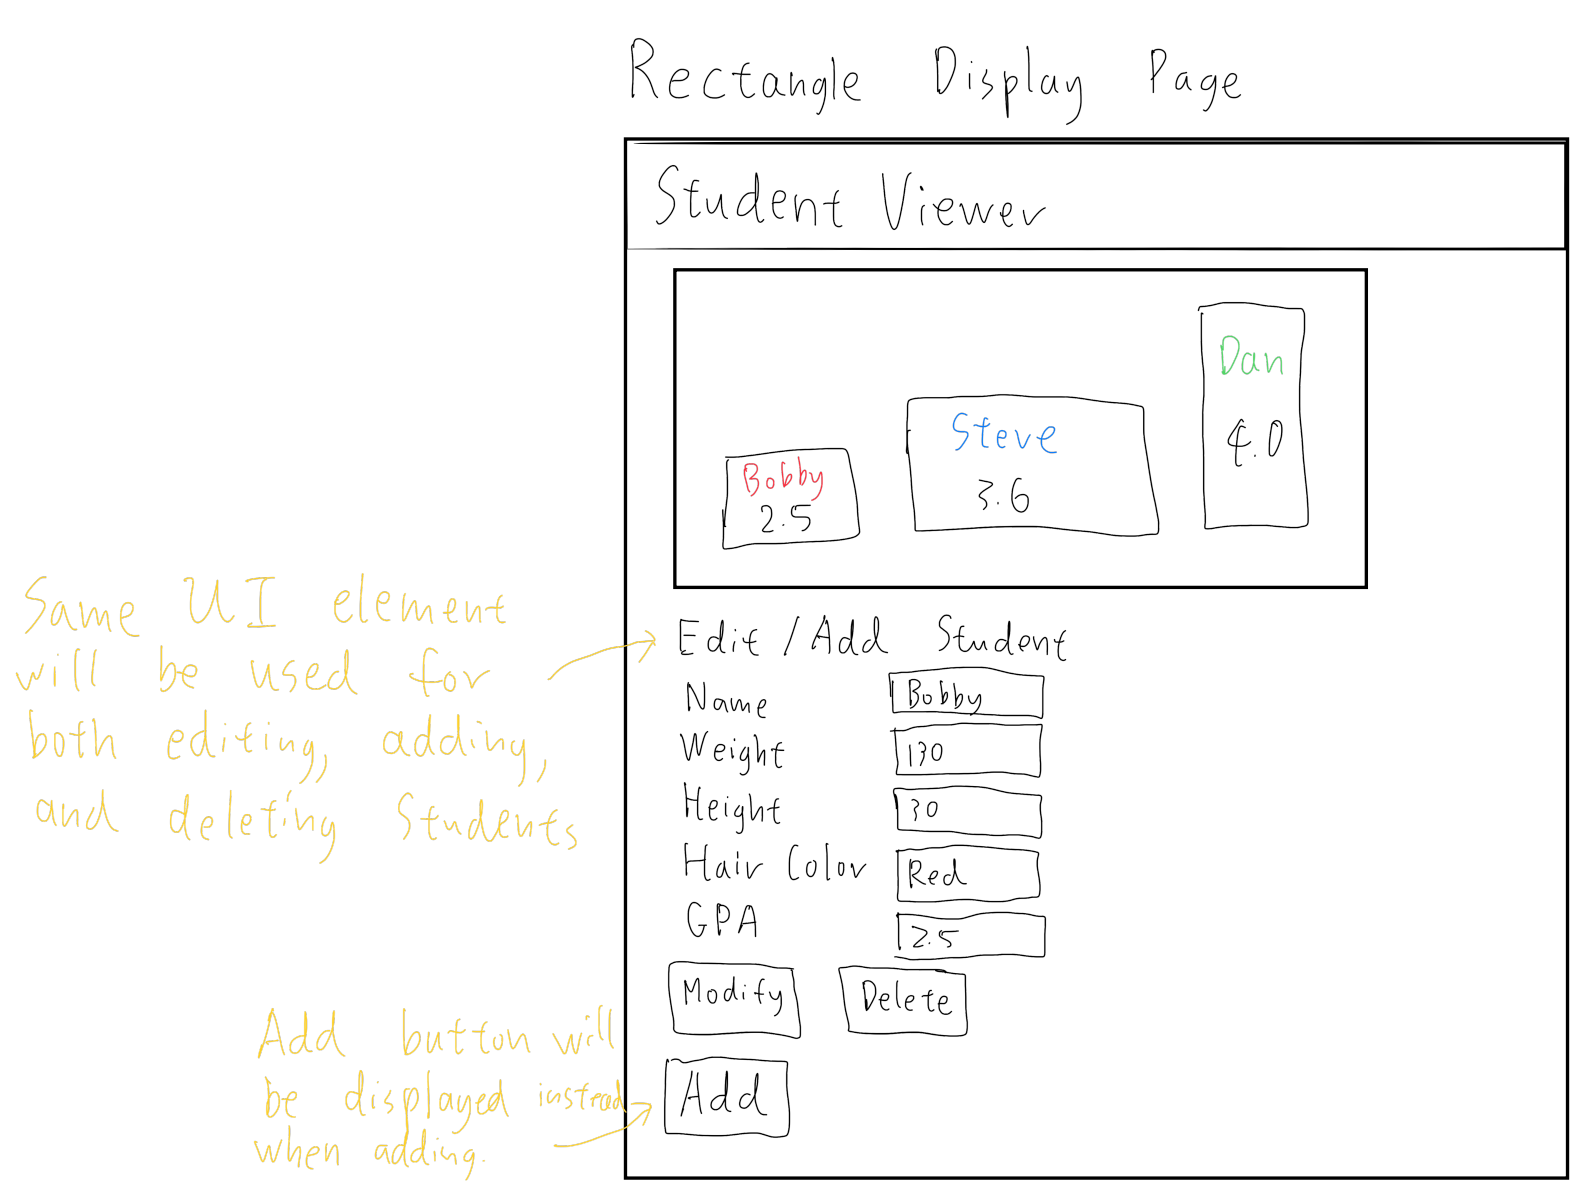 Rectangle Display Page
Student Viewer
Bobby
2.5
Steve
3.6
Dan
4.0
Same UI element
will be used for
both editing, adding,
and deleting Students
Edit / Add Student
Name Bobby
Weight 130
Height 30
Hair Color Red
GPA 2.5
Modify Delete
Add button will
be displayed instead
when adding.
Add